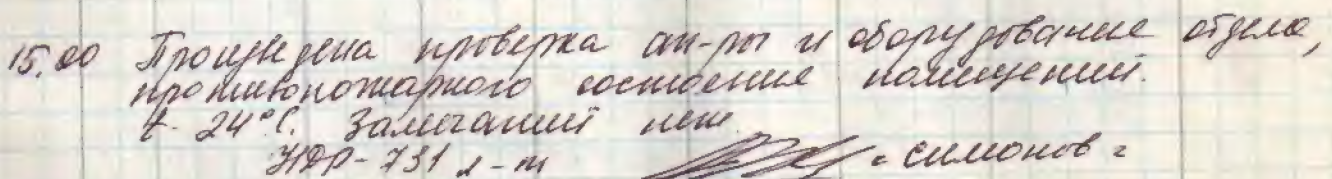 15.00 Произведена проверка ап-ры и оборудование отдела,
противопожарного состояние помещений.
t- 24°С. Замечаний нет.
НДР-731 л-т = Симонов =